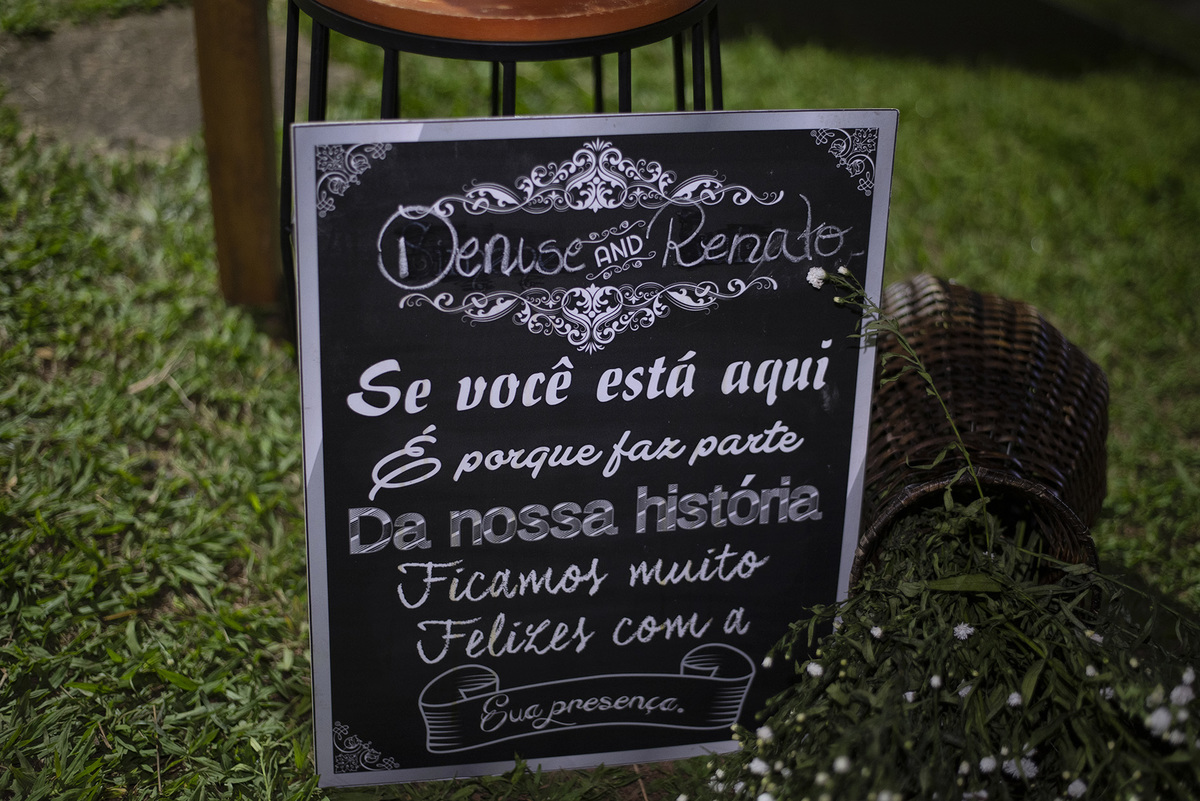 Denise AND Renato
Se você está aqui
É porque faz parte
Da nossa história
Ficamos muito
Felizes com a
Sua presença.